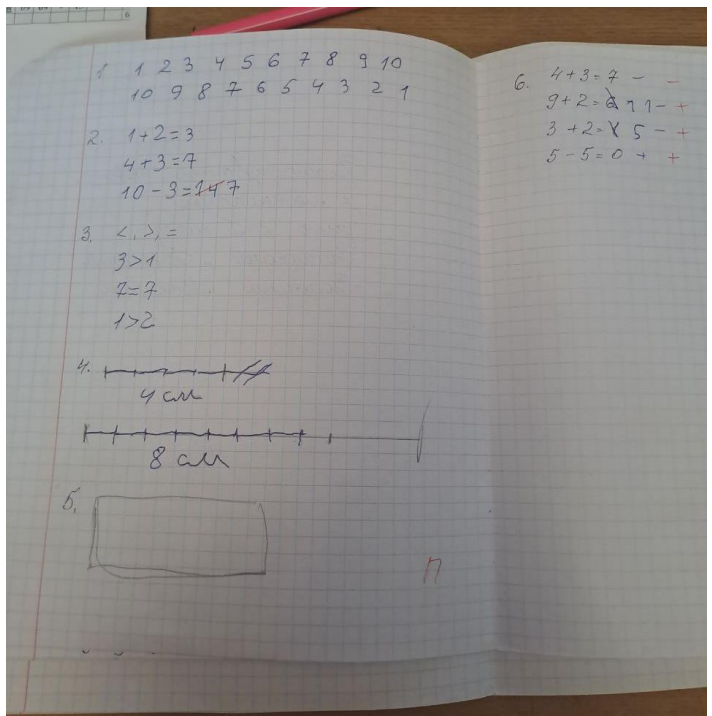 1. 1 2 3 4 5 6 7 8 9 10
10 9 8 7 6 5 4 3 2 1
2. 1+2=3
4+3=7
10-3=14 7
3. <, >, =
3>1
7=7
1>2
4.
4 см
8 см
5.
П
6. 4+3=7 - -
9+2=6 11- +
3+2= 5 - +
5-5=0 + +